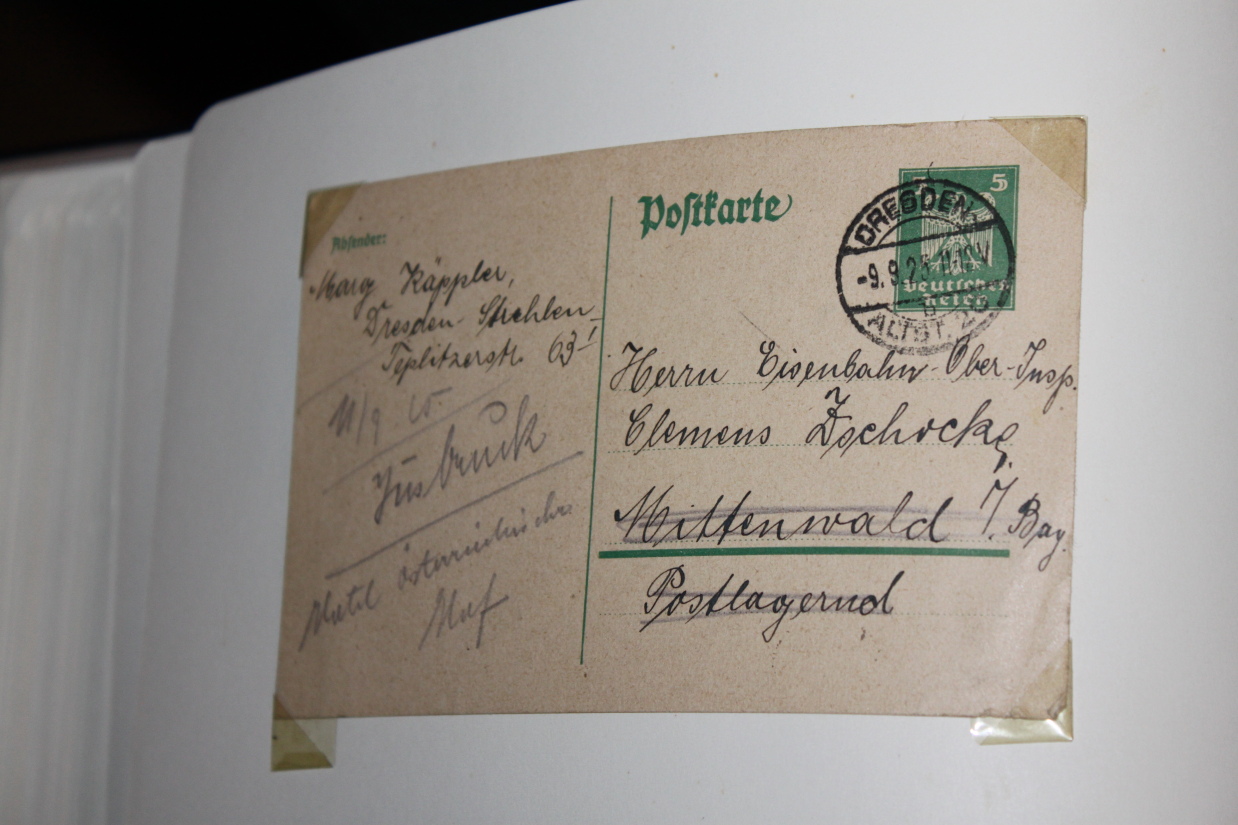 Absender:
Marg Käppler,
Dresden-Strehlen
Teplitzerstr. 63 I
Postkarte
5 5
Deutsches
Reich
DRESDEN
-9.9.25. 11-12V
ALTST.
Herrn Eisenbahn-Ober-Insp.
Clemens Zschocke,
Mittenwald i/Bay.
Postlagernd
Insbruck
Hotel österreichischer
Hof